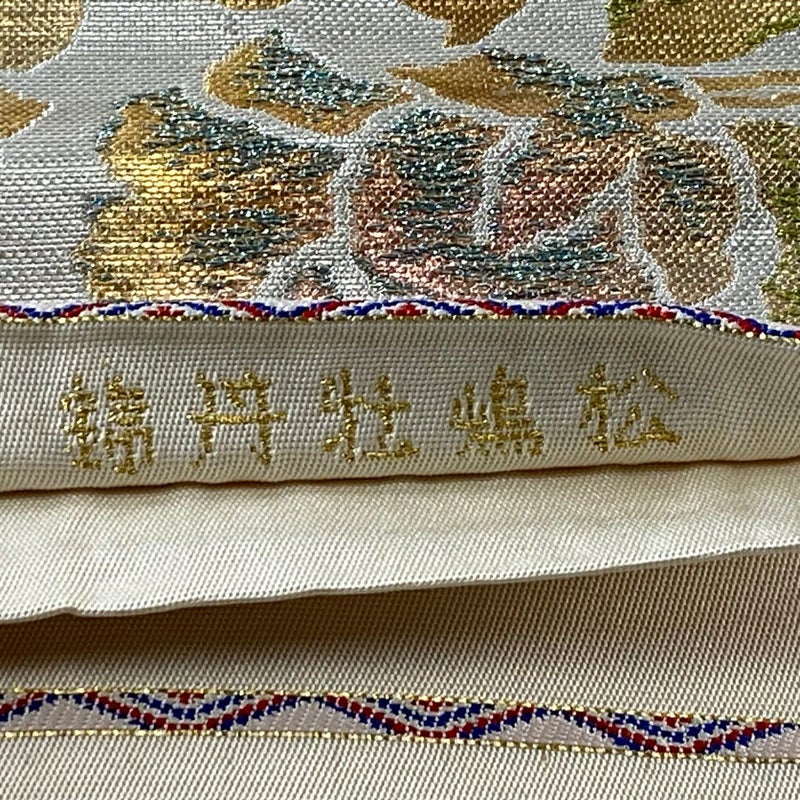 松嶋牡丹錦